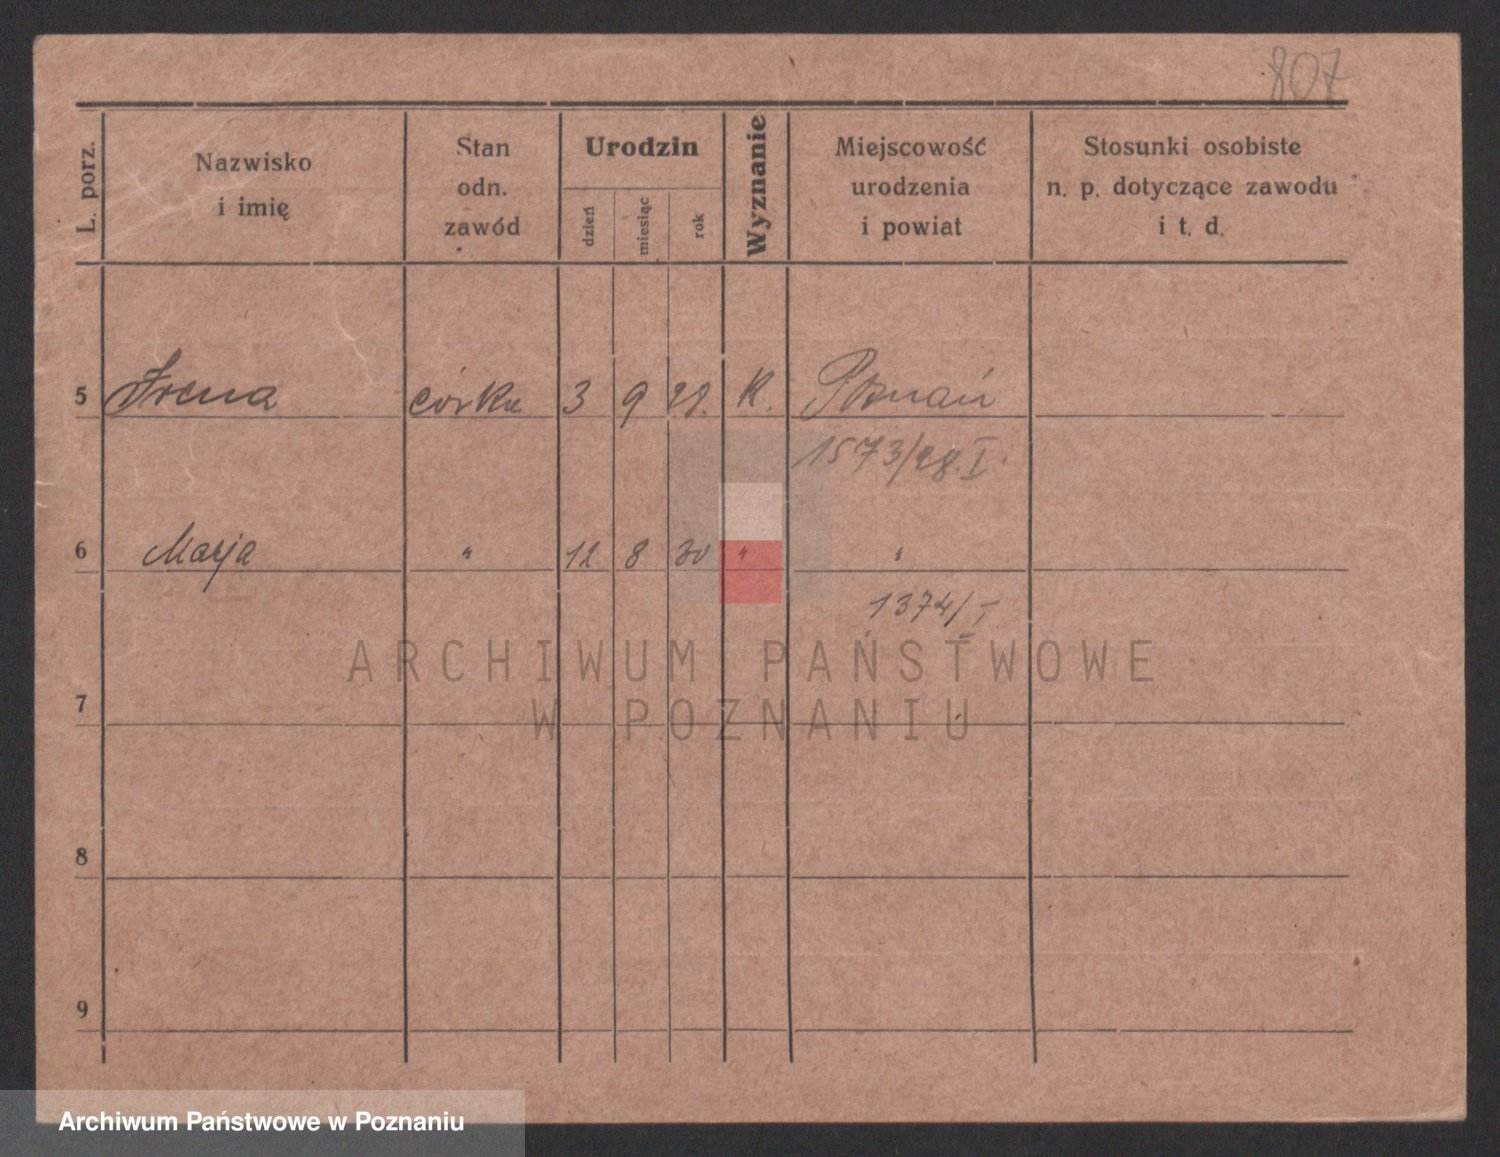 807
L. porz.
Nazwisko
i imię
Stan
odn.
zawód
Urodzin
dzień
miesiąc
rok
Wyznanie
Miejscowość
urodzenia
i powiat
Stosunki osobiste
n. p. dotyczące zawodu
i t. d.
5 Irena córka 3 9 28. K. Poznań
1573/28. I.
6 Marja " 12 8 30 " "
1374/I
ARCHIWUM PAŃSTWOWE
W POZNANIU
7
8
9
Archiwum Państwowe w Poznaniu